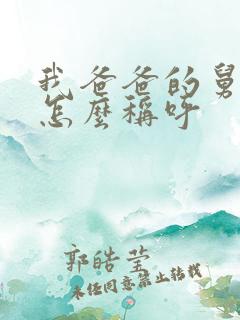 我爸爸的舅
怎麼稱呼
郭皓莹
未经同意禁止转载